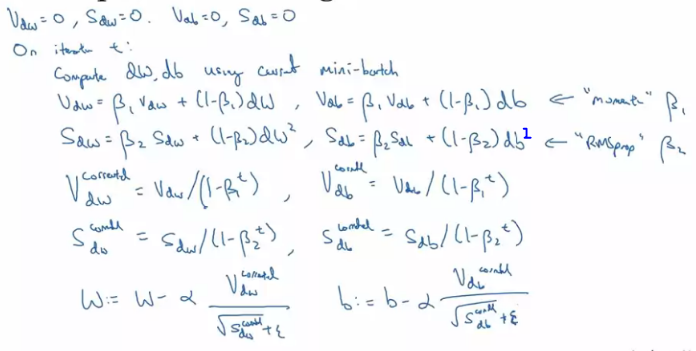 V_dw = 0, S_dw = 0. V_db = 0, S_db = 0
On iteration t:
Compute dW, db using current mini-batch
V_dw = β₁ V_dw + (1-β₁) dW , V_db = β₁ V_db + (1-β₁) db ← "momentum" β₁
S_dw = β₂ S_dw + (1-β₂) dW² , S_db = β₂ S_db + (1-β₂) db² ← "RMSprop" β₂
V_dw^corrected = V_dw / (1-β₁^t) , V_db^corrected = V_db / (1-β₁^t)
S_dw^corrected = S_dw / (1-β₂^t) , S_db^corrected = S_db / (1-β₂^t)
W := W - α V_dw^corrected / √S_dw^corrected + ε b := b - α V_db^corrected / √S_db^corrected + ε